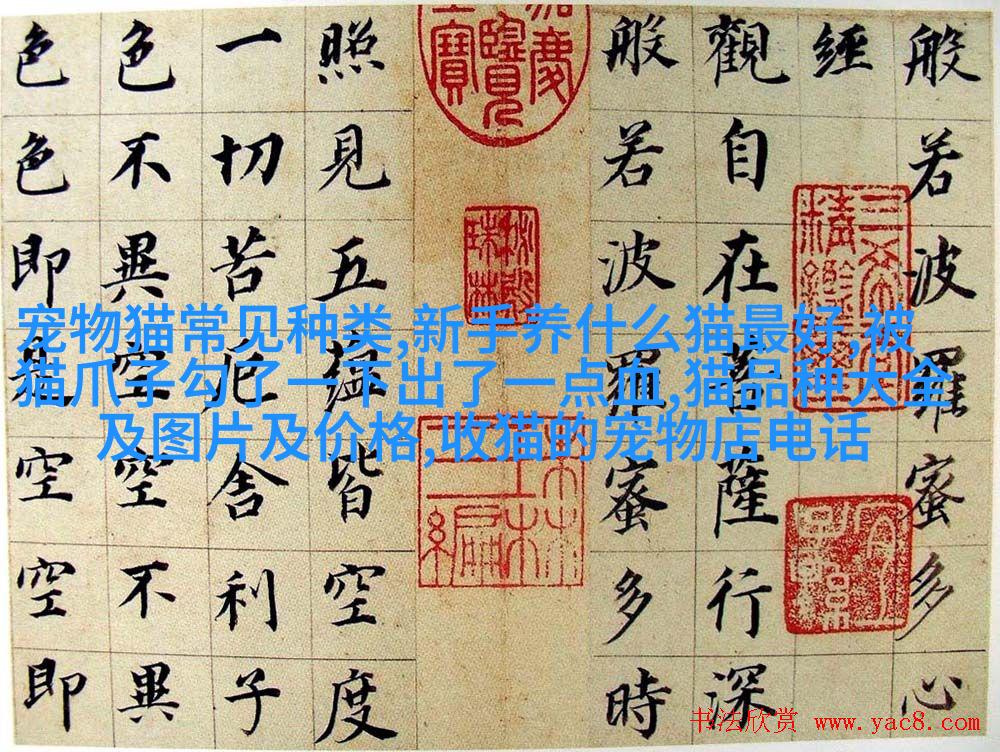 般若波羅蜜多心
經
觀自在菩薩行深
般若波羅蜜多時
照見五蘊皆空度
一切苦厄舍利子
色不異空空不異
色色即是空空即
宠物猫常见种类,新手养什么猫最好,被
猫爪子勾了一下出了一点血,猫品种大全
及图片及价格,收猫的宠物店电话
书法欣赏 www.yac8.com